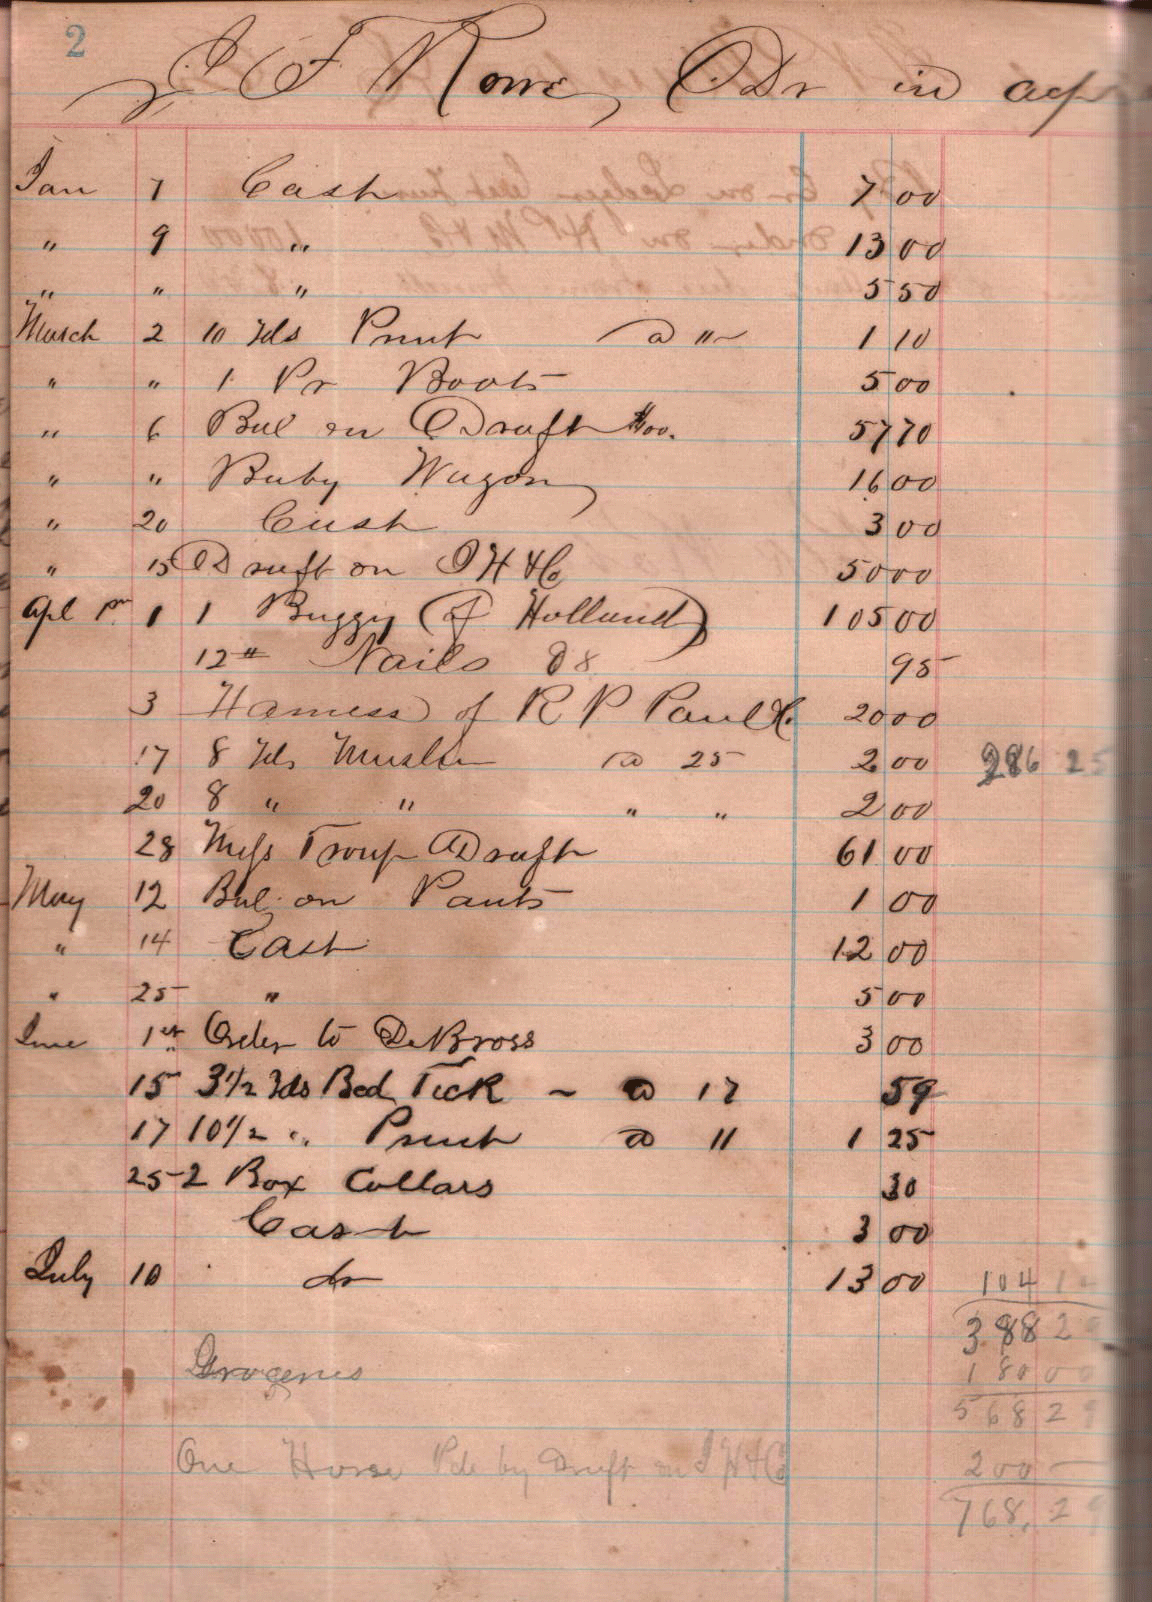 2
J F Rowe, Dr in acp
Jan 7 Cash 7 00
" 9 " 13 00
" " " 5 50
March 2 10 Yds Print @ 11 1 10
" " 1 Pr Boots 5 00
" 6 Bal on Draft 57 70
" " Baby Wagon 16 00
" 20 Cash 3 00
" 15 Draft on J H & Co 50 00
Apl 1 1 Buggy (of Holland) 105 00
12 # Nails 08 95
3 Harness of R P Paul 20 00
17 8 Yds Muslin @ 25 2 00 286 25
20 8 " " " " 2 00
28 Mess Troup Draft 61 00
May 12 Bal on Pants 1 00
" 14 Cash 12 00
" 25 " 5 00
June 1st Order to DeBross 3 00
15 3 1/2 Yds Bed Tick - @ 17 59
17 10 1/2 " Print @ 11 1 25
25 2 Box Collars 30
Cash 3 00
July 10 do 13 00 104 1
388 2
Groceries 180 00
568 2
One Horse Pd by Draft on J H & Co 200 —
768. 2